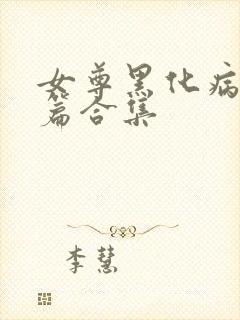 女尊黑化病
篇合集
李慧